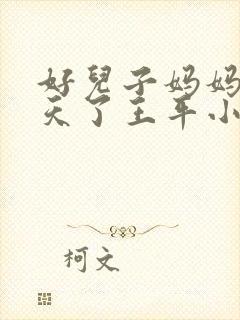 好兒子妈妈
天了王平小
柯文